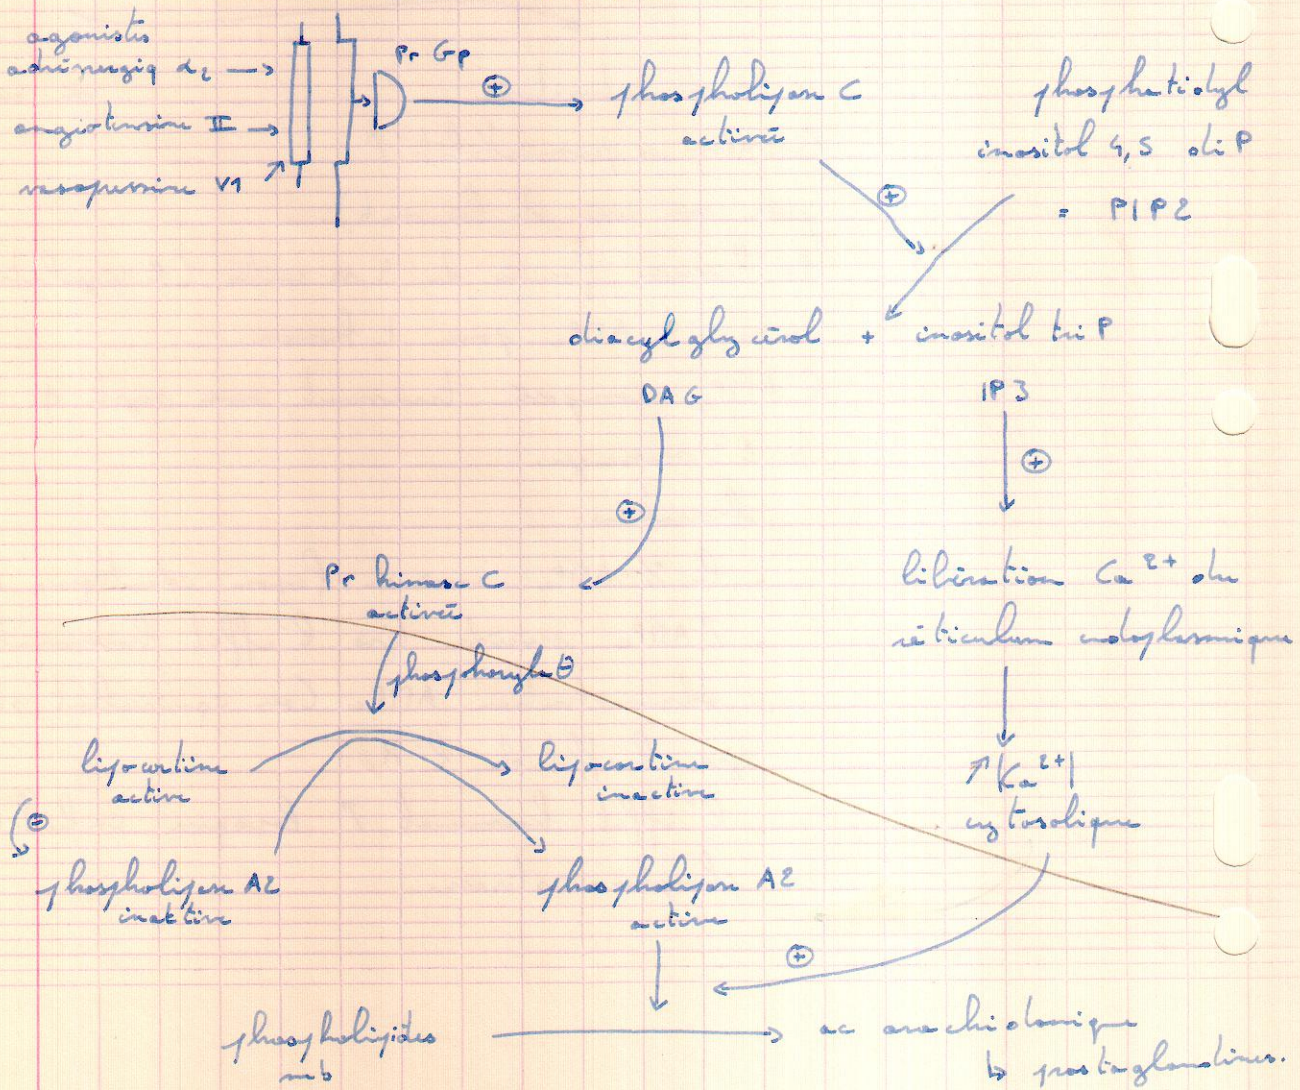 agonistes
adrénergiq α2 →
Pr Gp
angiotensine II →
vasopressine V1
⊕
phospholipase C
activée
phosphatidyl
inositol 4,5 di P
= PIP2
⊕
diacylglycérol + inositol tri P
DAG
IP3
⊕
⊕
Pr kinase C
activée
libération Ca2+ du
réticulum endoplasmique
phosphorylaθ
lipocortine
active
lipocortine
inactive
↗ |Ca2+|
cytosolique
⊖
phospholipase A2
inactive
phospholipase A2
active
⊕
phospholipides
mb
ac arachidonique
↳ prostaglandines.